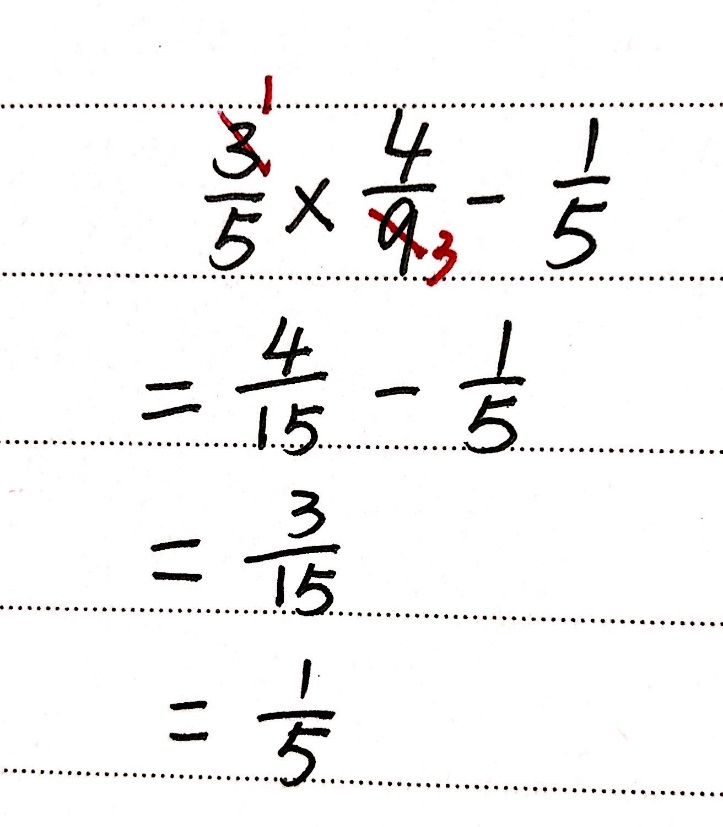 1
3/5 × 4/9 3 - 1/5
= 4/15 - 1/5
= 3/15
= 1/5